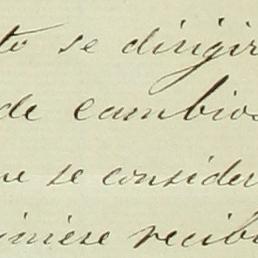 to se dirigir
de cambios
ue se consider
iniese recibi